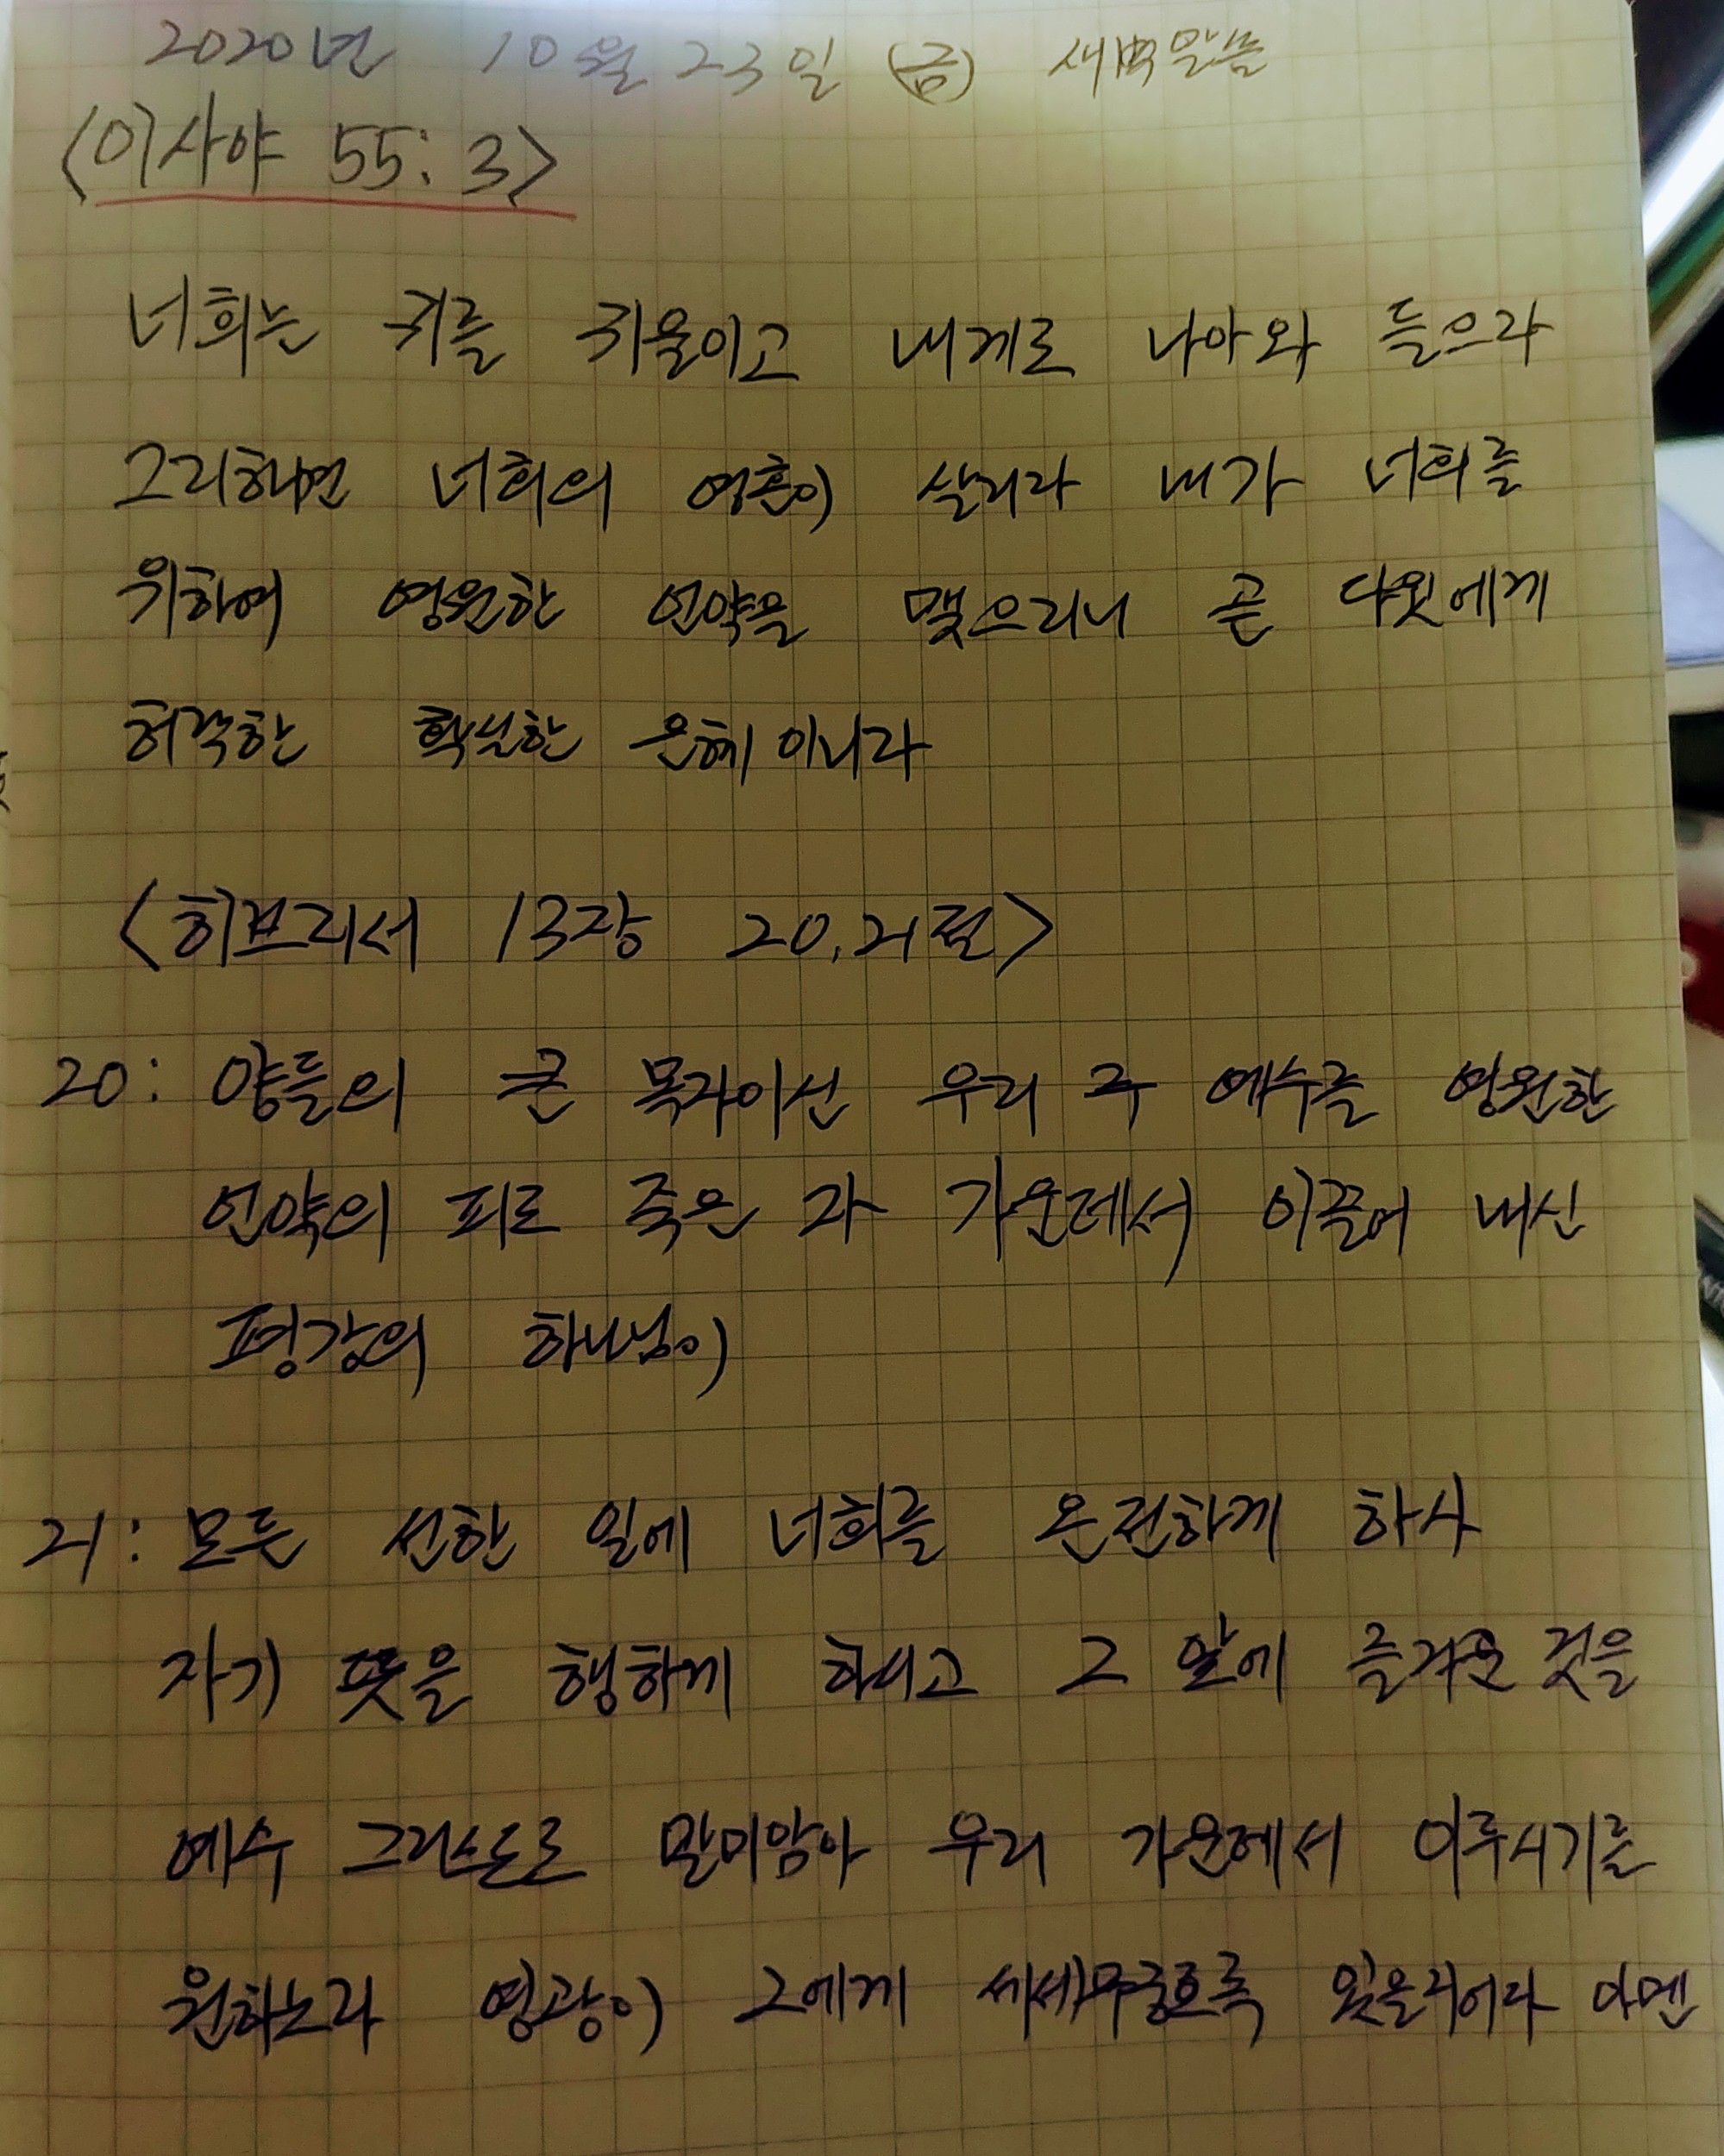 2020년 10월 23일 (금) 새벽말씀
<이사야 55:3>
너희는 귀를 기울이고 내게로 나아와 들으라
그리하면 너희의 영혼이 살리라 내가 너희를
위하여 영원한 언약을 맺으리니 곧 다윗에게
허락한 확실한 은혜이니라
<히브리서 13장 20,21절>
20: 양들의 큰 목자이신 우리 주 예수를 영원한
언약의 피로 죽은 자 가운데서 이끌어 내신
평강의 하나님이
21: 모든 선한 일에 너희를 온전하게 하사
자기 뜻을 행하게 하시고 그 앞에 즐거운 것을
예수 그리스도로 말미암아 우리 가운데서 이루시기를
원하노라 영광이 그에게 세세무궁토록 있을지어다 아멘